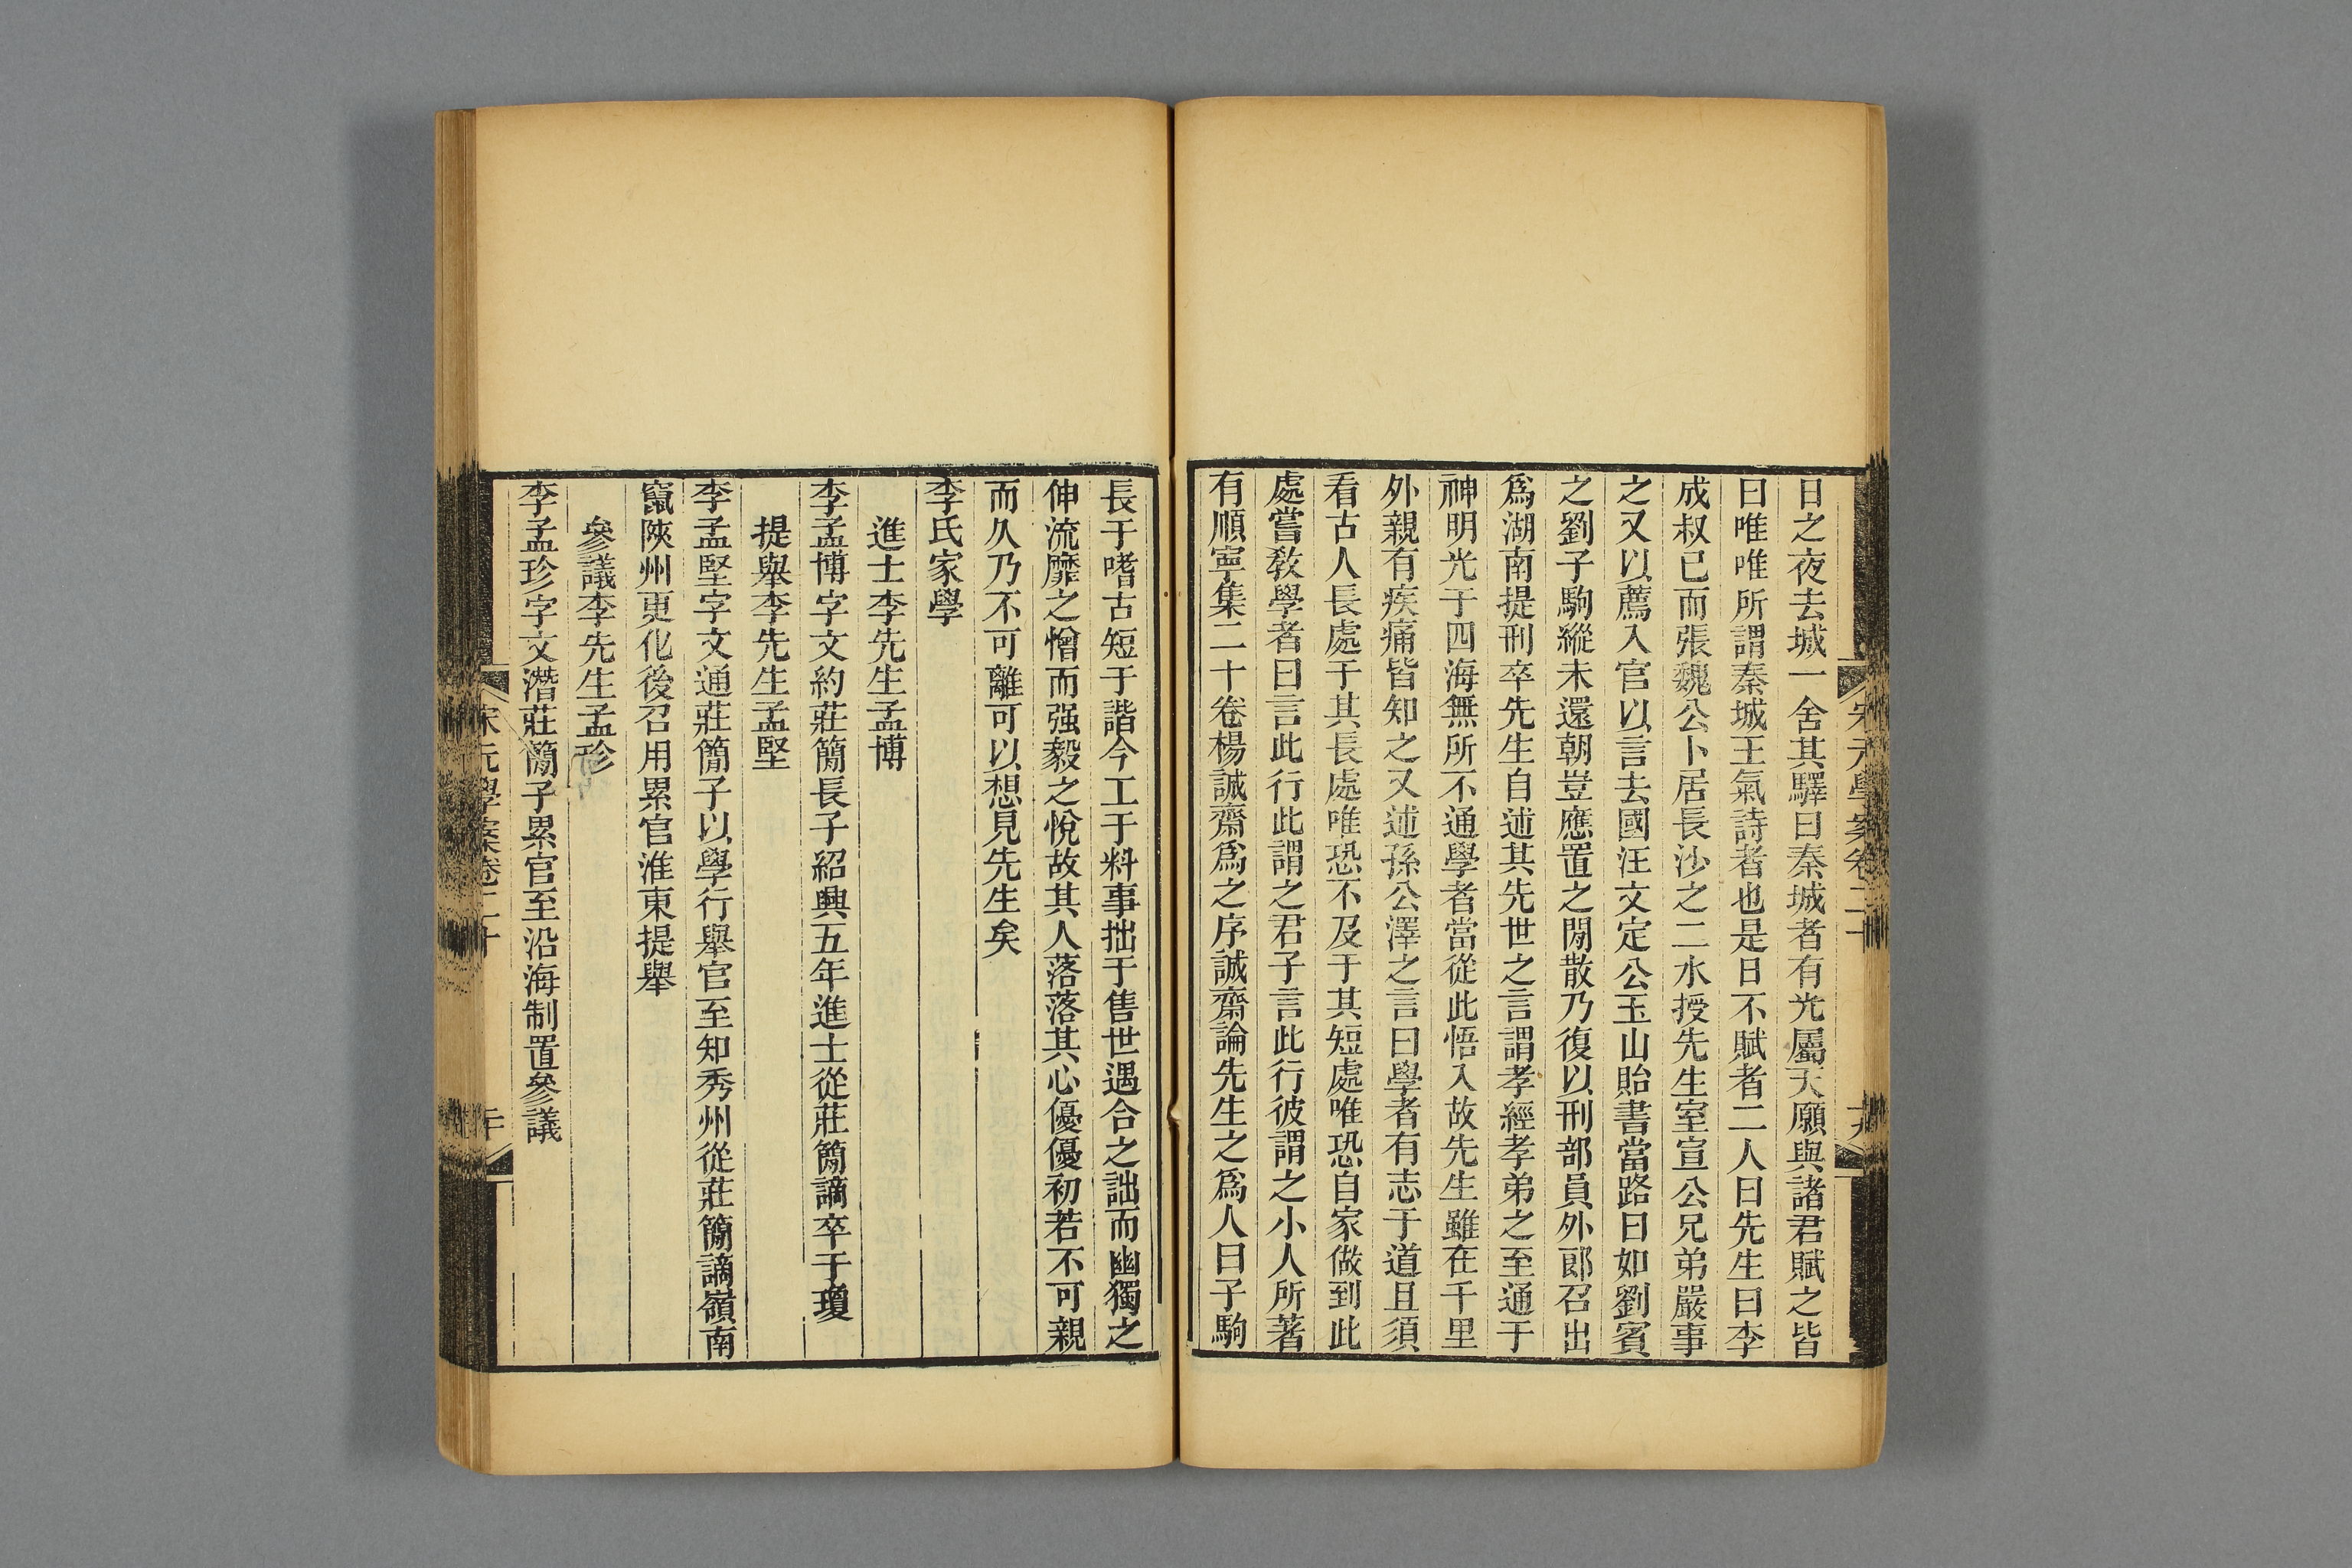 日之夜去城一舍其驛曰秦城者有光屬天願與諸君賦之皆
曰唯唯所謂秦城王氣詩者也是日不賦者二人曰先生曰李
成叔已而張魏公卜居長沙之二水授先生室宣公兄弟嚴事
之又以薦入官以言去國汪文定公玉山貽書當路曰如劉賓
之劉子駒縱未還朝豈應置之閒散乃復以刑部員外郎召出
爲湖南提刑卒先生自述其先世之言謂孝經孝弟之至通于
神明光于四海無所不通學者當從此悟入故先生雖在千里
外親有疾痛皆知之又述孫公澤之言曰學者有志于道且須
看古人長處于其長處唯恐不及于其短處唯恐自家做到此
處嘗敎學者曰言此行此謂之君子言此行彼謂之小人所著
有順寧集二十卷楊誠齋爲之序誠齋論先生之爲人曰子駒
宋元學案卷二十
長于嗜古短于諧今工于料事拙于售世遇合之詘而幽獨之
伸流靡之憎而强毅之悅故其人落落其心優優初若不可親
而久乃不可離可以想見先生矣
李氏家學
進士李先生孟博
李孟博字文約莊簡長子紹興五年進士從莊簡謫卒于瓊
提舉李先生孟堅
李孟堅字文通莊簡子以學行舉官至知秀州從莊簡謫嶺南
竄陝州更化後召用累官淮東提舉
參議李先生孟珍
李孟珍字文潛莊簡子累官至沿海制置參議
宋元學案卷二十